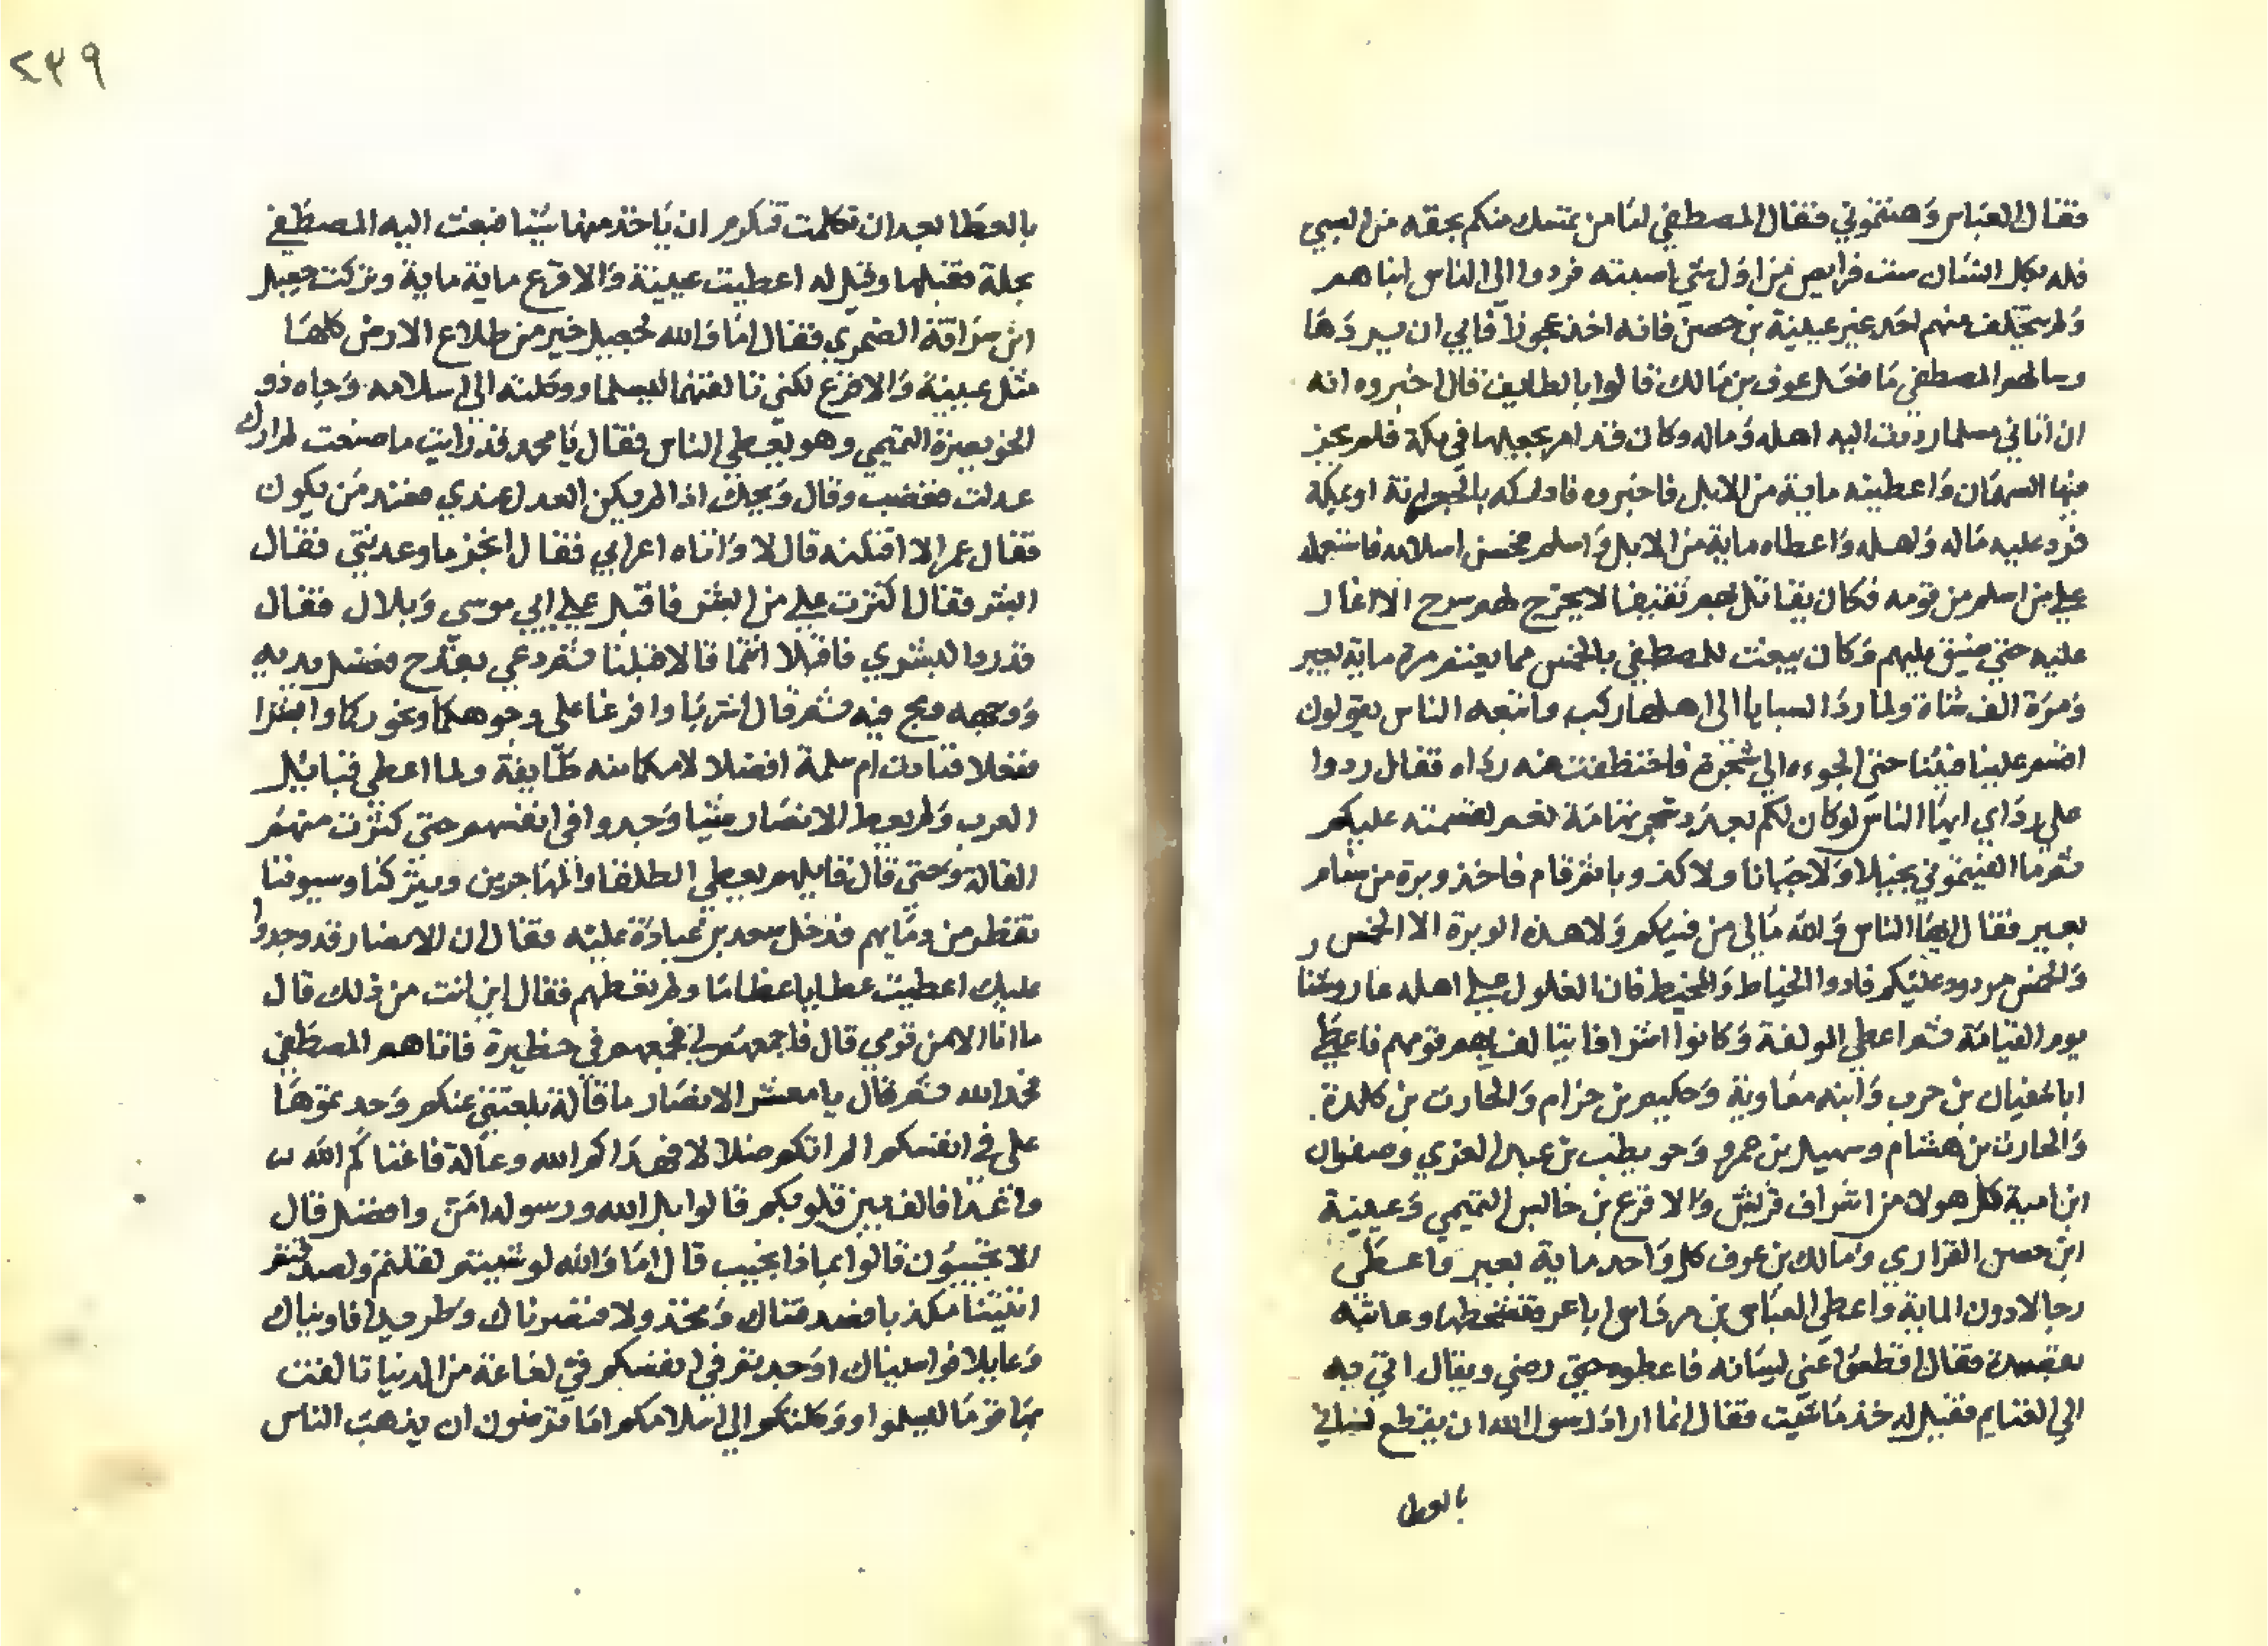 فقال العباس وهنتموني فقال المصطفي لنا من تمسك منكم بحقه من السبي
فله بكل انسان ست فرايص من اول شي اصيبه فردوا الي الناس ابناهم
ولم يتخلف منهم احد غير عيينة بن حصن فانه اخذ عجوزا فابي ان يردها
وسالهم المصطفي ما فعل عوف بن مالك قالوا بالطايف قال اخبروه انه
ان اتاني مسلما رددت اليه اهله وماله وكان قد امر بحبسها في مكة فلم يجز
فيها السهمان واعطيته ماية من الابل فاخبروه فادركه بالجعرانة او بمكة
فرد عليه ماله واهله واعطاه ماية من الابل واسلم فحسن اسلامه فاستعمله
علي من اسلم من قومه فكان يقاتل بهم ثقيفا لا يخرج لهم سرح الا اغار
عليه حتي ضيق عليهم وكان يبعث للمصطفي بالخمس مما يغنم مرة ماية بعير
ومرة الف شاة ولما رد السبايا الي اهلها ركب واتبعه الناس يقولون
اقسم علينا فيئنا حتي الجوءه الي شجرة فاختطفت عنه رداه فقال ردوا
علي رداي ايها الناس لو كان لكم بعدد شجر تهامة نعم لقسمته عليكم
ثم ما الفيتموني بخيلا ولا جبانا ولا كذوبا ثم قام فاخذ وبرة من سنام
بعير فقال ايها الناس والله مالي من فيئكم ولا هذه الوبرة الا الخمس
والخمس مردود عليكم فادوا الخياط والمخيط فان الغلول علي اهله عار وشنا
يوم القيامة ثم اعطي المولفة وكانوا اشرافا يتالفهم ... قومهم فاعطي
ابا سفيان بن حرب وابنه معاوية وحكيم بن حزام والحارث بن كلدة
والحارث بن هشام وسهيل بن عمرو وحويطب بن عبد العزي وصفوان
ابن امية كل هولا من اشراف قريش والاقرع بن حابس التميمي وعيينة
ابن حصن الفزاري ومالك بن عوف كل واحد ماية بعير واعطي
رجالا دون الماية واعطي العباس بن مرداس اباعر فتسخطها وعاتبه
بقصيدة فقال اقطعوا عني لسانه فاعطوه حتي رضي ويقال اتي به
الي الغنايم فقيل له خذ ما شيت فقال انما اراد رسول الله ان يقطع لساني
بالعطا
٢٣٩
بالعطا بعد ان تكلمت فتكرم ان ياخذ منها شيئا فبعث اليه المصطفي
بحلة فقبلها وقيل له اعطيت عيينة والاقرع ماية ماية وتركت جعيل
ابن سراقة الضمري فقال اما والله لجعيل خير من طلاع الارض كلها
مثل عيينة والاقرع لكني تالفتهما ليسلما ووكلته الي اسلامه وجاه ذو
الخويصرة التميمي وهو يعطي الناس فقال يا محمد قد رايت ما صنعت لم ارك
عدلت فغضب وقال ويحك اذا لم يكن العدل عندي فعند من يكون
فقال عمر الا اقتله قال لا واتاه اعرابي فقال انجز ما وعدتني فقال
ابشر فقال اكثرت علي من ابشر فاقبل علي ابي موسي وبلال فقال
قد ردا البشري فاقبلا انتما قالا قبلنا ثم دعي بقدح فغسل يديه
ووجهه ومج فيه ثم قال اشربا وافرغا علي وجوهكما ونحوركما وابشرا
ففعلا فنادت ام سلمة افضلا لامكما منه طايفة ولما اعطي قبايل
العرب ولم يعط الانصار شيا وجدوا في انفسهم حتي كثرت منهم
القالة وحتي قال قايلهم يعطي الطلقا والمهاجرين ويتركنا وسيوفنا
تقطر من دمايهم فدخل سعد بن عبادة عليه فقال ان الانصار قد وجدوا
عليك اعطيت عطايا عظاما ولم تعطهم فقال اين انت من ذلك قال
ما انا الا من قومي قال فاجمعهم لي فجمعهم في حظيرة فاتاهم المصطفي
فحمد الله ثم قال يا معشر الانصار ما قالة بلغتني عنكم وجدتموها
علي في انفسكم الم اتكم ضلالا فهداكم الله وعالة فاغناكم الله
واعدا فالف بين قلوبكم قالوا بلي الله ورسوله امن وافضل قال
الا تجيبون قالوا بماذا نجيب قال اما والله لو شيتم لقلتم ولصدقتم
اتيتنا مكذبا فصدقناك ومخذولا فنصرناك وطريدا فاويناك
وعايلا فواسيناك اوجدتم في انفسكم في لعاعة من الدنيا تالفت
بها قوما ليسلموا ووكلتكم الي اسلامكم اما ترضون ان يذهب الناس